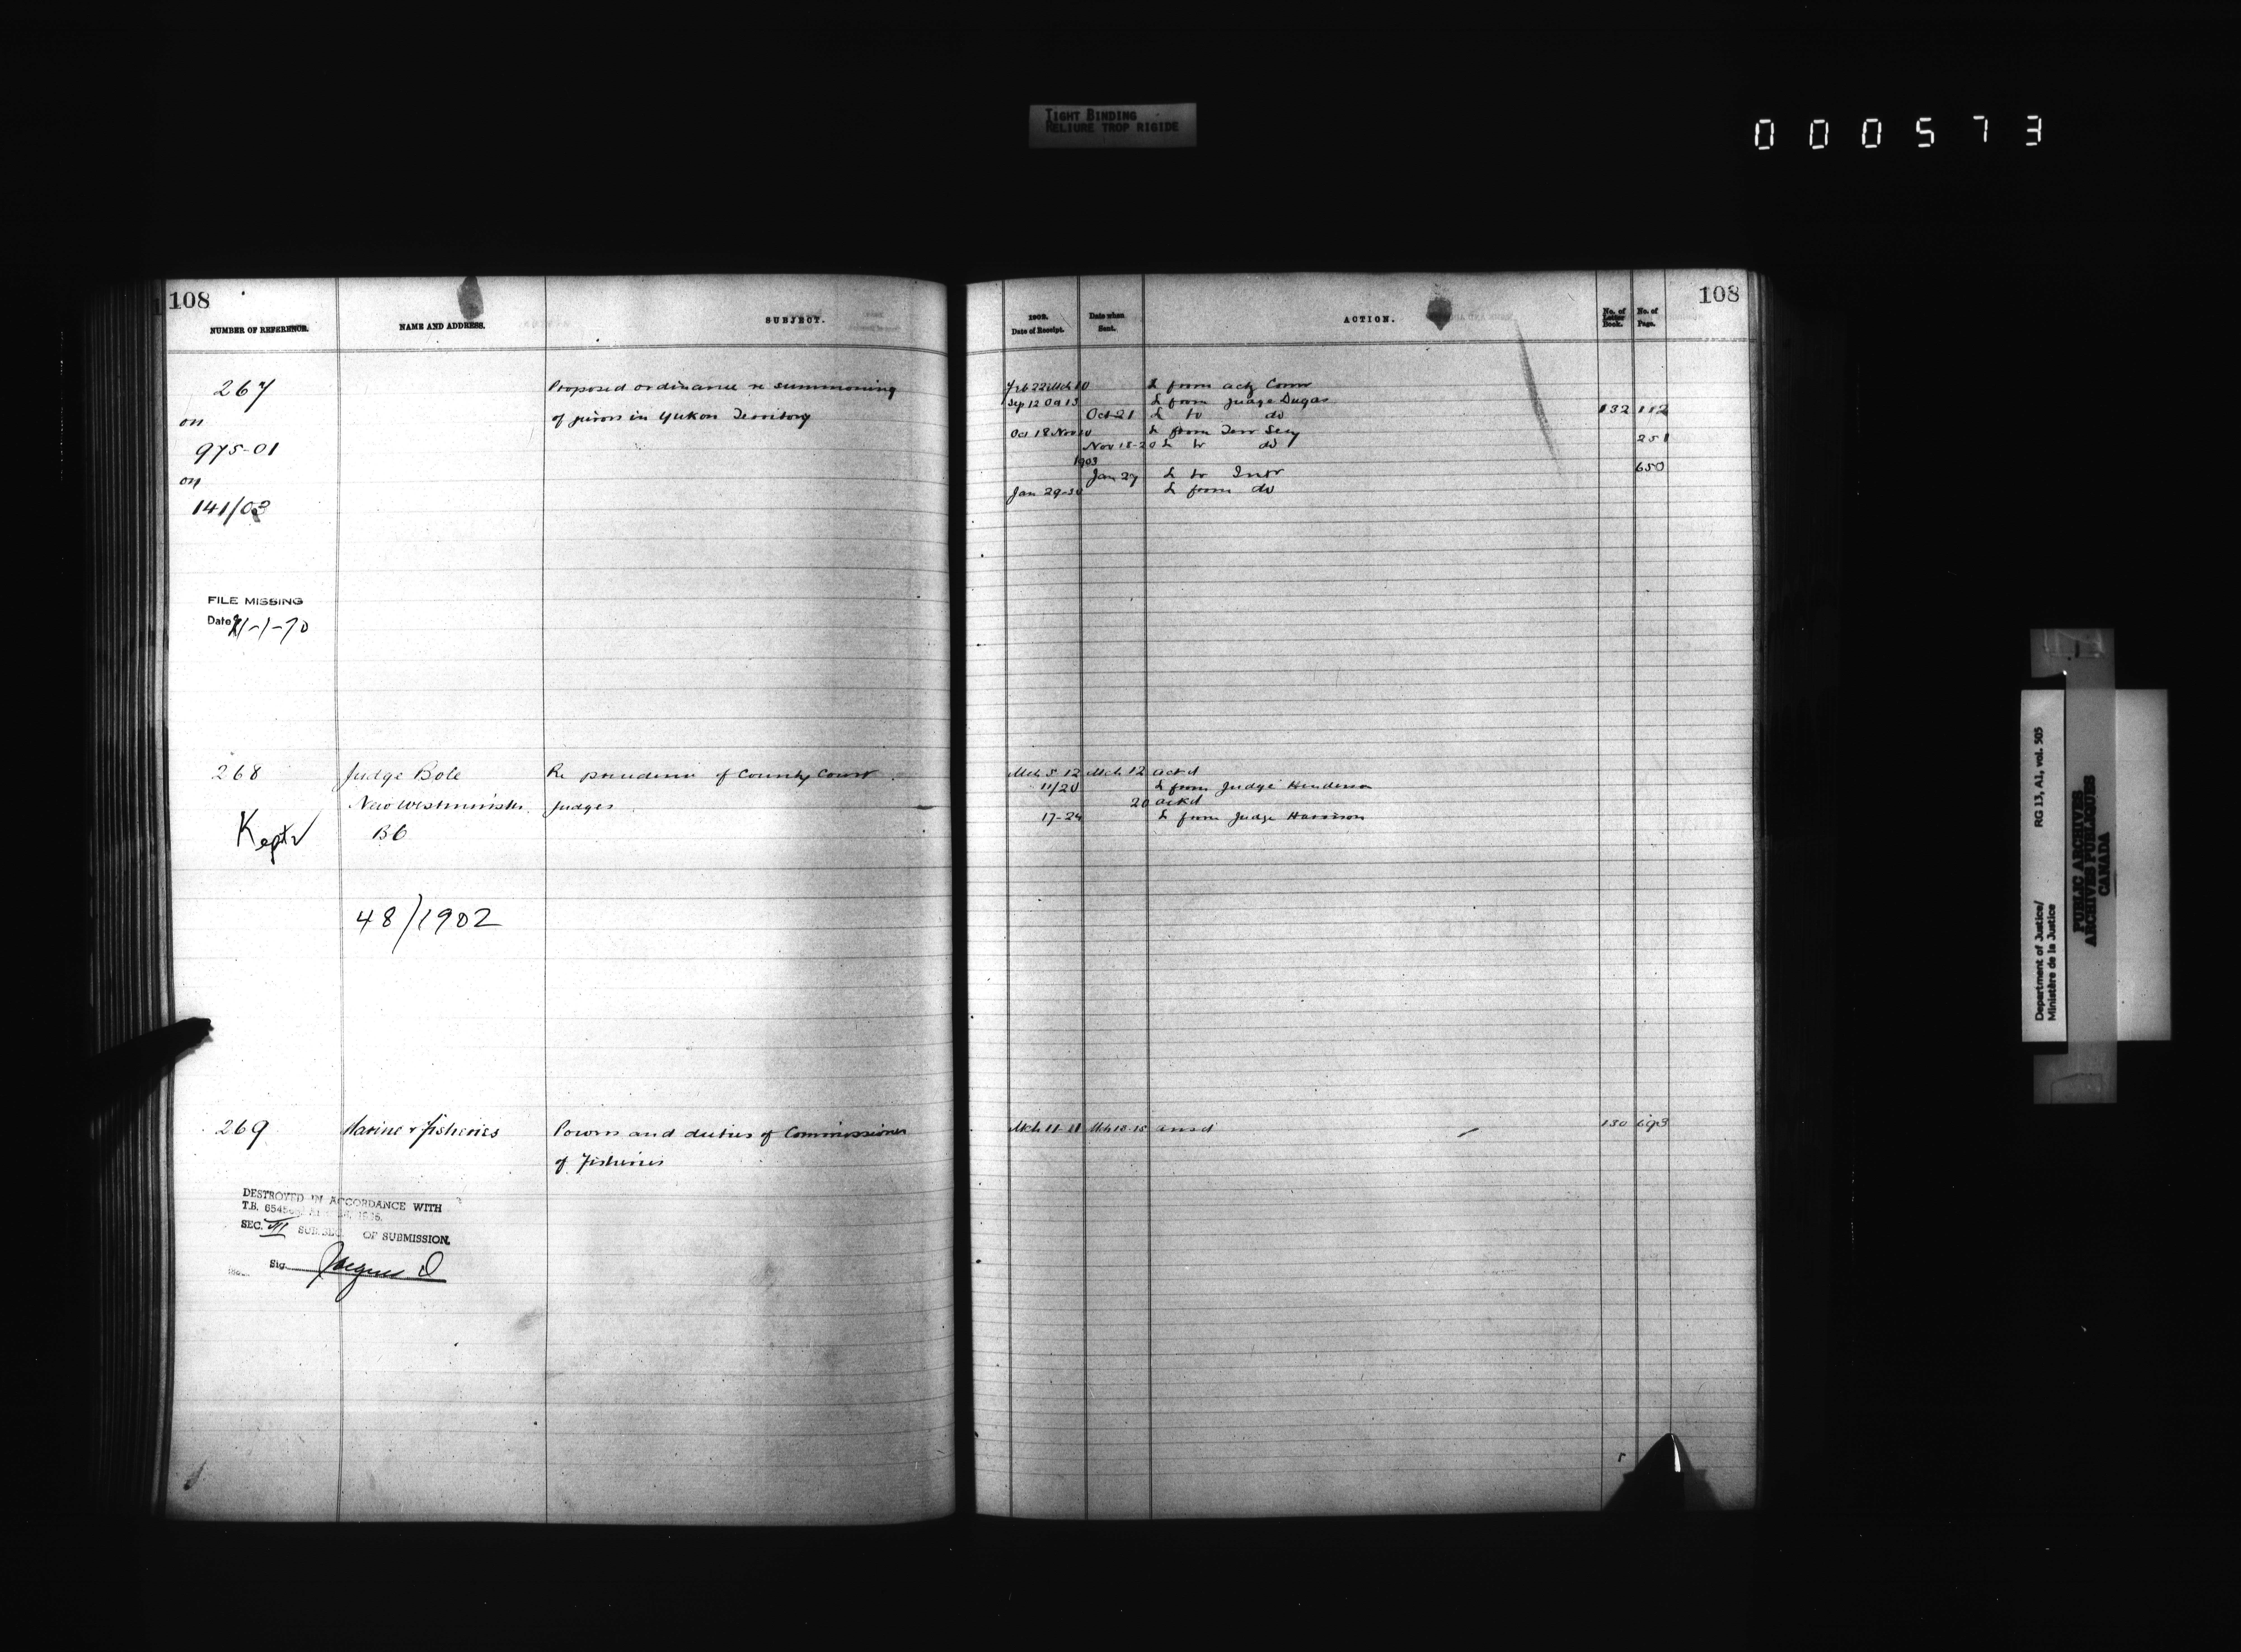 TIGHT BINDING
RELIURE TROP RIGIDE
000573
108
NUMBER OF REFERENCE.
NAME AND ADDRESS.
SUBJECT.
267
on
975-01
on
141/03
Proposed ordinance re summoning
of jurors in Yukon Territory
FILE MISSING
Date 21-1-70
268
Judge Bole
New Westminster
BC
Re precedence of County Court
Judges
Kept
48/1902
269
Marine & Fisheries
Powers and duties of Commissioner
of Fisheries
DESTROYED IN ACCORDANCE WITH
T.B.
SEC. VII SUBSEC. OF SUBMISSION.
Sig.
108
1902.
Date of Receipt.
Date when
Sent.
ACTION.
No. of
Letter
Book.
No. of
Page.
Feb 22 Mch 10 L from actg Comr
Sep 12 Oct 13 L from Judge Dugas
Oct 21 L to do 132 182
Oct 18 Nov 10 L from Terr Secy
Nov 18-20 L to do 251
1903
Jan 27 L to Intr 650
Jan 29-30 L from do
Mch 5 12 Mch 12 ackd
11/20 L from Judge Henderson
20 ackd
17-24 L from Judge Harrison
Mch 11-11 Mch 12-15 ansd 130 693
Department of Justice/
Ministère de la Justice
RG 13, A1, vol. 505
PUBLIC ARCHIVES
ARCHIVES PUBLIQUES
CANADA